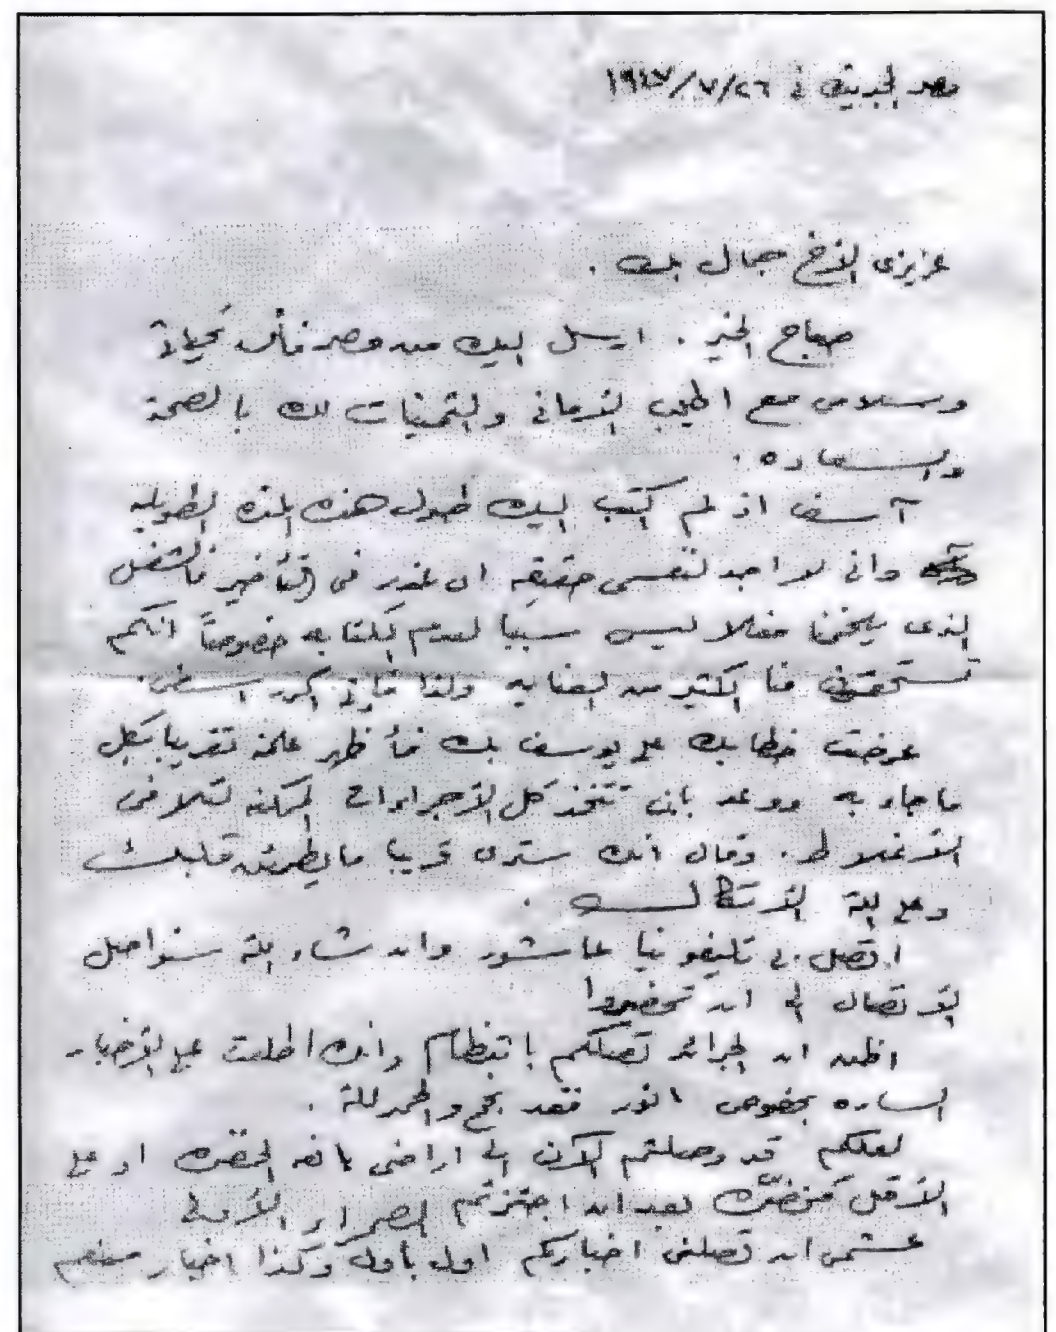 مصر الجديدة فى ٢٦/٧/١٩٤٧
عزيزى الأخ جمال بك .
صباح الخير . ارسل اليك من مصر فائق تحياتى
وسلامى مع اطيب الأمانى والتمنيات لك بالصحة
والسعاده .
آسف اذ لم اكتب اليك طول هذه المدة الطويله
وانى لا اجد لنفسى حقيقه اى عذر فى التأخير فالشغل
الذى يطحننا فعلا ليس سببا لعدم الكتابه خصوصاً انكم
تستحقون منا الكثير من العنايه ولذا فإنى اكرر اسفى .
عرضت خطابك على يوسف بك فأظهر علمه تقريبا بكل
ما جاء به ووعد بان تتخذ كل الأجراءات الممكنه لتلافى
الأغلاط . وقال انك سترى قريبا ما يطمئن قلبك
وعلى الله الأتكال .
اتصل بى تليفونيا عاشور وان شاء الله سنواصل
الاتصال الى ان تحضروا
اظن ان الجرائد تصلكم بانتظام وانك اطلعت على الأخبار
الساره بخصوص انور فقد نجح والحمد لله .
لعلكم قد وصلتم الآن الى اراضى يانعه الخضرة او على
الأقل مخضرّة بعد ان اجتزتم الصحراء الأولى
عشمى ان تصلنى اخباركم اول بأول وكذا اخبار